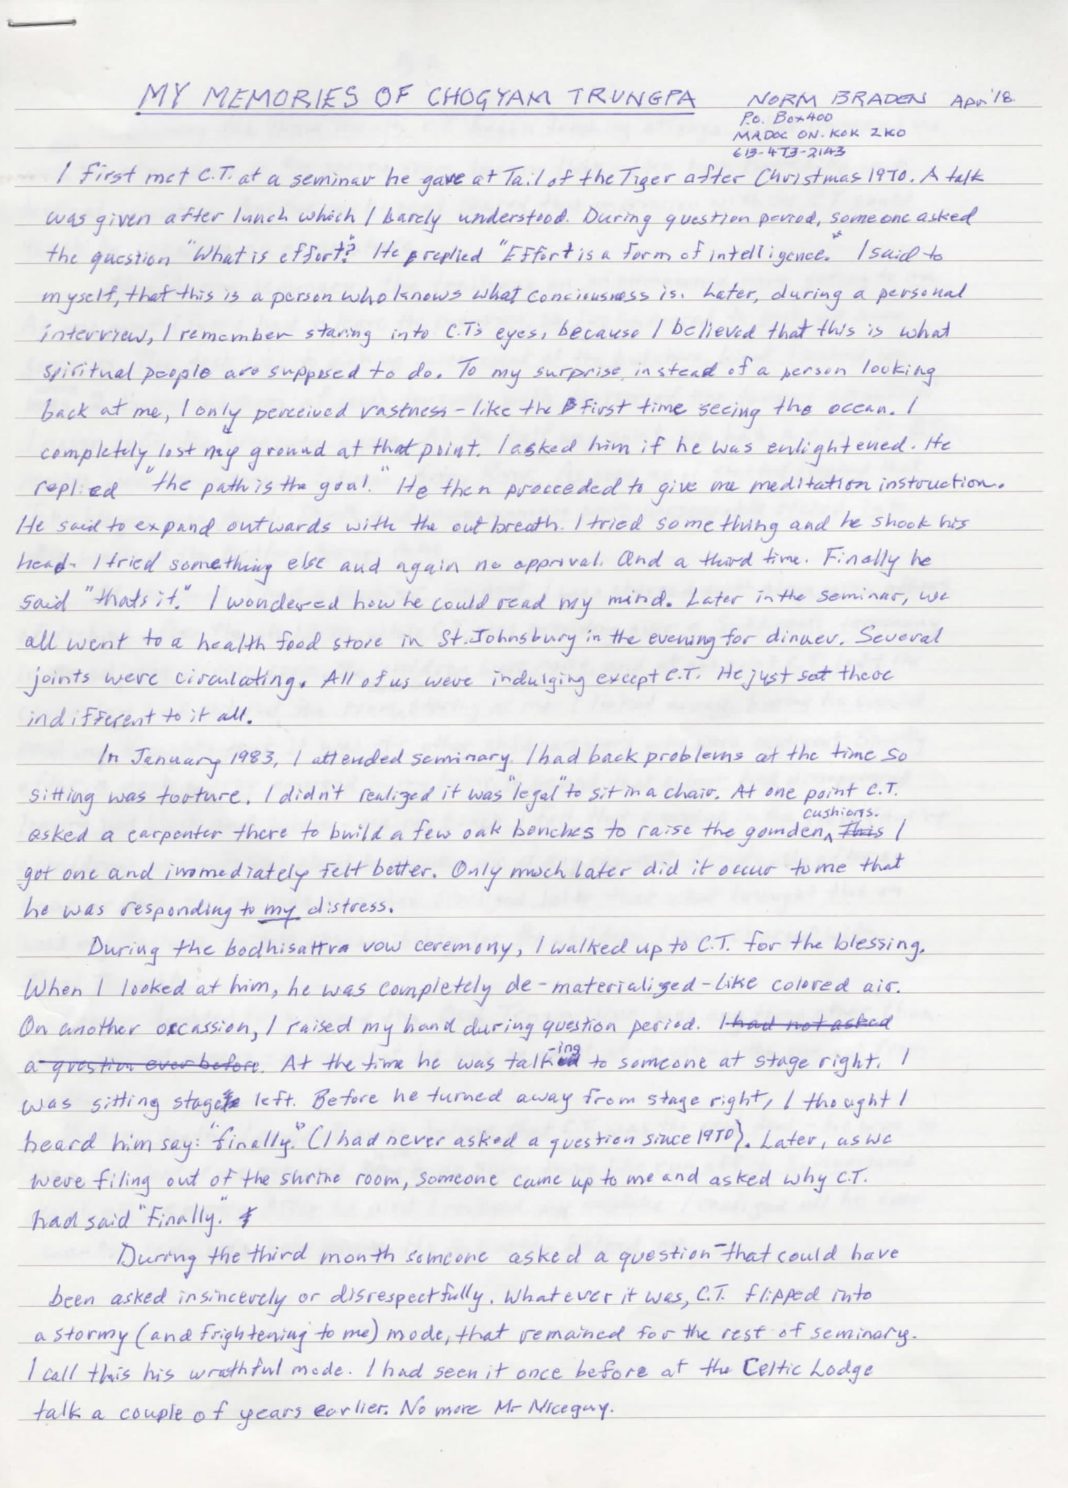 MY MEMORIES OF CHOGYAM TRUNGPA NORM BRADEN Apr '18
P.O. Box 400
MADOC ON. K0K 2K0
613-473-2143
I first met C.T. at a seminar he gave at Tail of the Tiger after Christmas 1970. A talk
was given after lunch which I barely understood. During question period, someone asked
the question "What is effort?" He replied "Effort is a form of intelligence." I said to
myself, that this is a person who knows what conciousness is. Later, during a personal
interview, I remember staring into C.T.'s eyes, because I believed that this is what
spiritual people are supposed to do. To my surprise, instead of a person looking
back at me, I only perceived vastness - like the first time seeing the ocean. I
completely lost my ground at that point. I asked him if he was enlightened. He
replied "the path is the goal." He then proceeded to give me meditation instruction.
He said to expand outwards with the out breath. I tried something and he shook his
head. I tried something else and again no approval. And a third time. Finally he
said "thats it." I wondered how he could read my mind. Later in the seminar, we
all went to a health food store in St. Johnsbury in the evening for dinner. Several
joints were circulating. All of us were indulging except C.T. He just sat there
indifferent to it all.
In January 1983, I attended seminary. I had back problems at the time so
sitting was torture. I didn't realized it was "legal" to sit in a chair. At one point C.T.
asked a carpenter there to build a few oak benches to raise the gomden cushions. This I
got one and immediately felt better. Only much later did it occur to me that
he was responding to my distress.
During the bodhisattva vow ceremony, I walked up to C.T. for the blessing.
When I looked at him, he was completely de-materialized - like colored air.
On another occassion, I raised my hand during question period. I had not asked
a question ever before. At the time he was talking to someone at stage right. I
was sitting stage left. Before he turned away from stage right, I thought I
heard him say: "finally." (I had never asked a question since 1970). Later, as we
were filing out of the shrine room, someone came up to me and asked why C.T.
had said "Finally."
During the third month someone asked a question that could have
been asked insincerely or disrespectfully. Whatever it was, C.T. flipped into
a stormy (and frightening to me) mode, that remained for the rest of seminary.
I call this his wrathful mode. I had seen it once before at the Celtic Lodge
talk a couple of years earlier. No more Mr Niceguy.